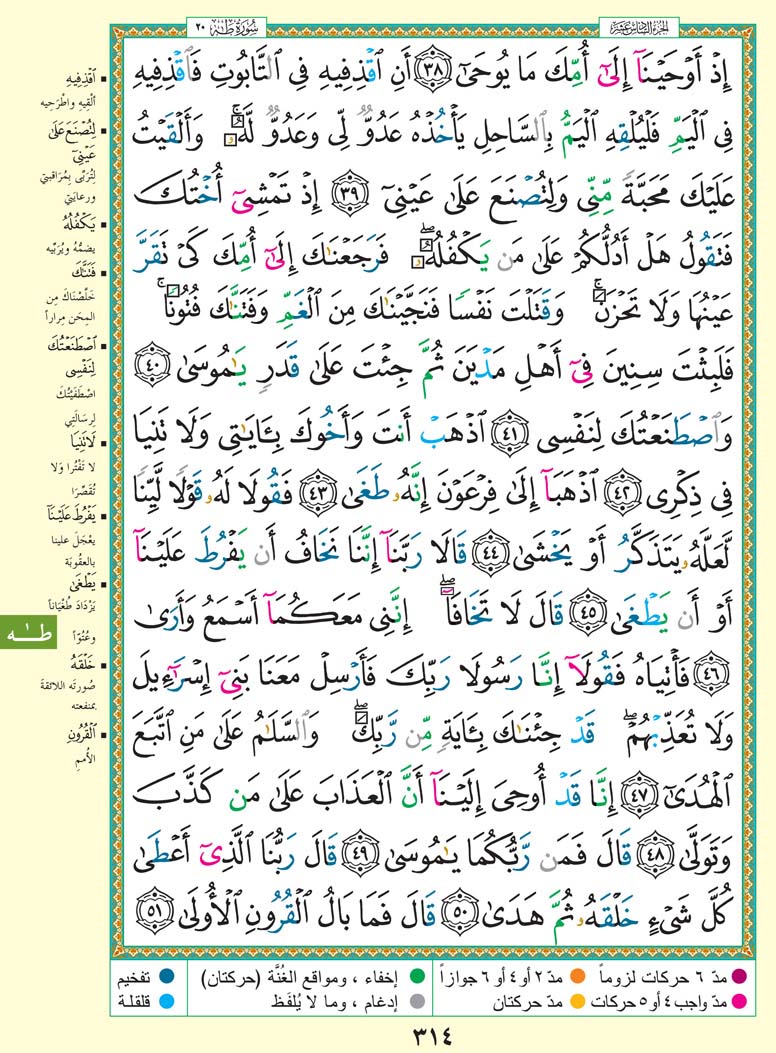 الجزء السادس عشر
سورة طه ٢٠
إِذْ أَوْحَيْنَآ إِلَىٰٓ أُمِّكَ مَا يُوحَىٰٓ ٣٨ أَنِ ٱقْذِفِيهِ فِى ٱلتَّابُوتِ فَٱقْذِفِيهِ
فِى ٱلْيَمِّ فَلْيُلْقِهِ ٱلْيَمُّ بِٱلسَّاحِلِ يَأْخُذْهُ عَدُوٌّ لِّى وَعَدُوٌّ لَّهُۥۚ وَأَلْقَيْتُ
عَلَيْكَ مَحَبَّةً مِّنِّى وَلِتُصْنَعَ عَلَىٰ عَيْنِىٓ ٣٩ إِذْ تَمْشِىٓ أُخْتُكَ
فَتَقُولُ هَلْ أَدُلُّكُمْ عَلَىٰ مَن يَكْفُلُهُۥۖ فَرَجَعْنَٰكَ إِلَىٰٓ أُمِّكَ كَىْ تَقَرَّ
عَيْنُهَا وَلَا تَحْزَنَۚ وَقَتَلْتَ نَفْسًا فَنَجَّيْنَٰكَ مِنَ ٱلْغَمِّ وَفَتَنَّٰكَ فُتُونًاۚ
فَلَبِثْتَ سِنِينَ فِىٓ أَهْلِ مَدْيَنَ ثُمَّ جِئْتَ عَلَىٰ قَدَرٍ يَٰمُوسَىٰ ٤٠
وَٱصْطَنَعْتُكَ لِنَفْسِى ٤١ ٱذْهَبْ أَنتَ وَأَخُوكَ بِـَٔايَٰتِى وَلَا تَنِيَا
فِى ذِكْرِى ٤٢ ٱذْهَبَآ إِلَىٰ فِرْعَوْنَ إِنَّهُۥ طَغَىٰ ٤٣ فَقُولَا لَهُۥ قَوْلًا لَّيِّنًا
لَّعَلَّهُۥ يَتَذَكَّرُ أَوْ يَخْشَىٰ ٤٤ قَالَا رَبَّنَآ إِنَّنَا نَخَافُ أَن يَفْرُطَ عَلَيْنَآ
أَوْ أَن يَطْغَىٰ ٤٥ قَالَ لَا تَخَافَآۖ إِنَّنِى مَعَكُمَآ أَسْمَعُ وَأَرَىٰ
٤٦ فَأْتِيَاهُ فَقُولَآ إِنَّا رَسُولَا رَبِّكَ فَأَرْسِلْ مَعَنَا بَنِىٓ إِسْرَٰٓءِيلَ
وَلَا تُعَذِّبْهُمْۖ قَدْ جِئْنَٰكَ بِـَٔايَةٍ مِّن رَّبِّكَۖ وَٱلسَّلَٰمُ عَلَىٰ مَنِ ٱتَّبَعَ
ٱلْهُدَىٰٓ ٤٧ إِنَّا قَدْ أُوحِىَ إِلَيْنَآ أَنَّ ٱلْعَذَابَ عَلَىٰ مَن كَذَّبَ
وَتَوَلَّىٰ ٤٨ قَالَ فَمَن رَّبُّكُمَا يَٰمُوسَىٰ ٤٩ قَالَ رَبُّنَا ٱلَّذِىٓ أَعْطَىٰ
كُلَّ شَىْءٍ خَلْقَهُۥ ثُمَّ هَدَىٰ ٥٠ قَالَ فَمَا بَالُ ٱلْقُرُونِ ٱلْأُولَىٰ ٥١
▪ ٱقْذِفِيهِ
ألقِيهِ واطْرَحِيه
▪ لِتُصْنَعَ عَلَىٰ
عَيْنِىٓ
لِتُرَبَّى بِمُرَاقبتِي
ورعايتي
▪ يَكْفُلُهُ
يضمُّهُ ويُرَبِّيه
▪ فَتَنَّٰكَ
خَلَّصْنَاكَ مِن
المِحَن مِراراً
▪ ٱصْطَنَعْتُكَ
لِنَفْسِى
اصْطَفَيْتُكَ
لِرِسالَتِي
▪ لَا تَنِيَا
لا تَفْتُرا وَلا
تُقَصِّرَا
▪ يَفْرُطَ عَلَيْنَآ
يَعْجَلَ علينا
بالعقُوبَة
▪ يَطْغَىٰ
يَزْدَادَ طُغْيَاناً
وعُتُوّاً
▪ خَلْقَهُ
صُورتَه اللائقةَ
بمنفعته
▪ ٱلْقُرُونِ
الأُممِ
طـٰـه
مدّ ٦ حركات لزوماً
مدّ ٢ أو ٤ أو ٦ جوازاً
إخفاء ، ومواقع الغُنَّة (حركتان)
تفخيم
مدّ واجب ٤ أو ٥ حركات
مدّ حركتان
إدغام ، وما لا يُلفَظ
قلقلة
٣١٤